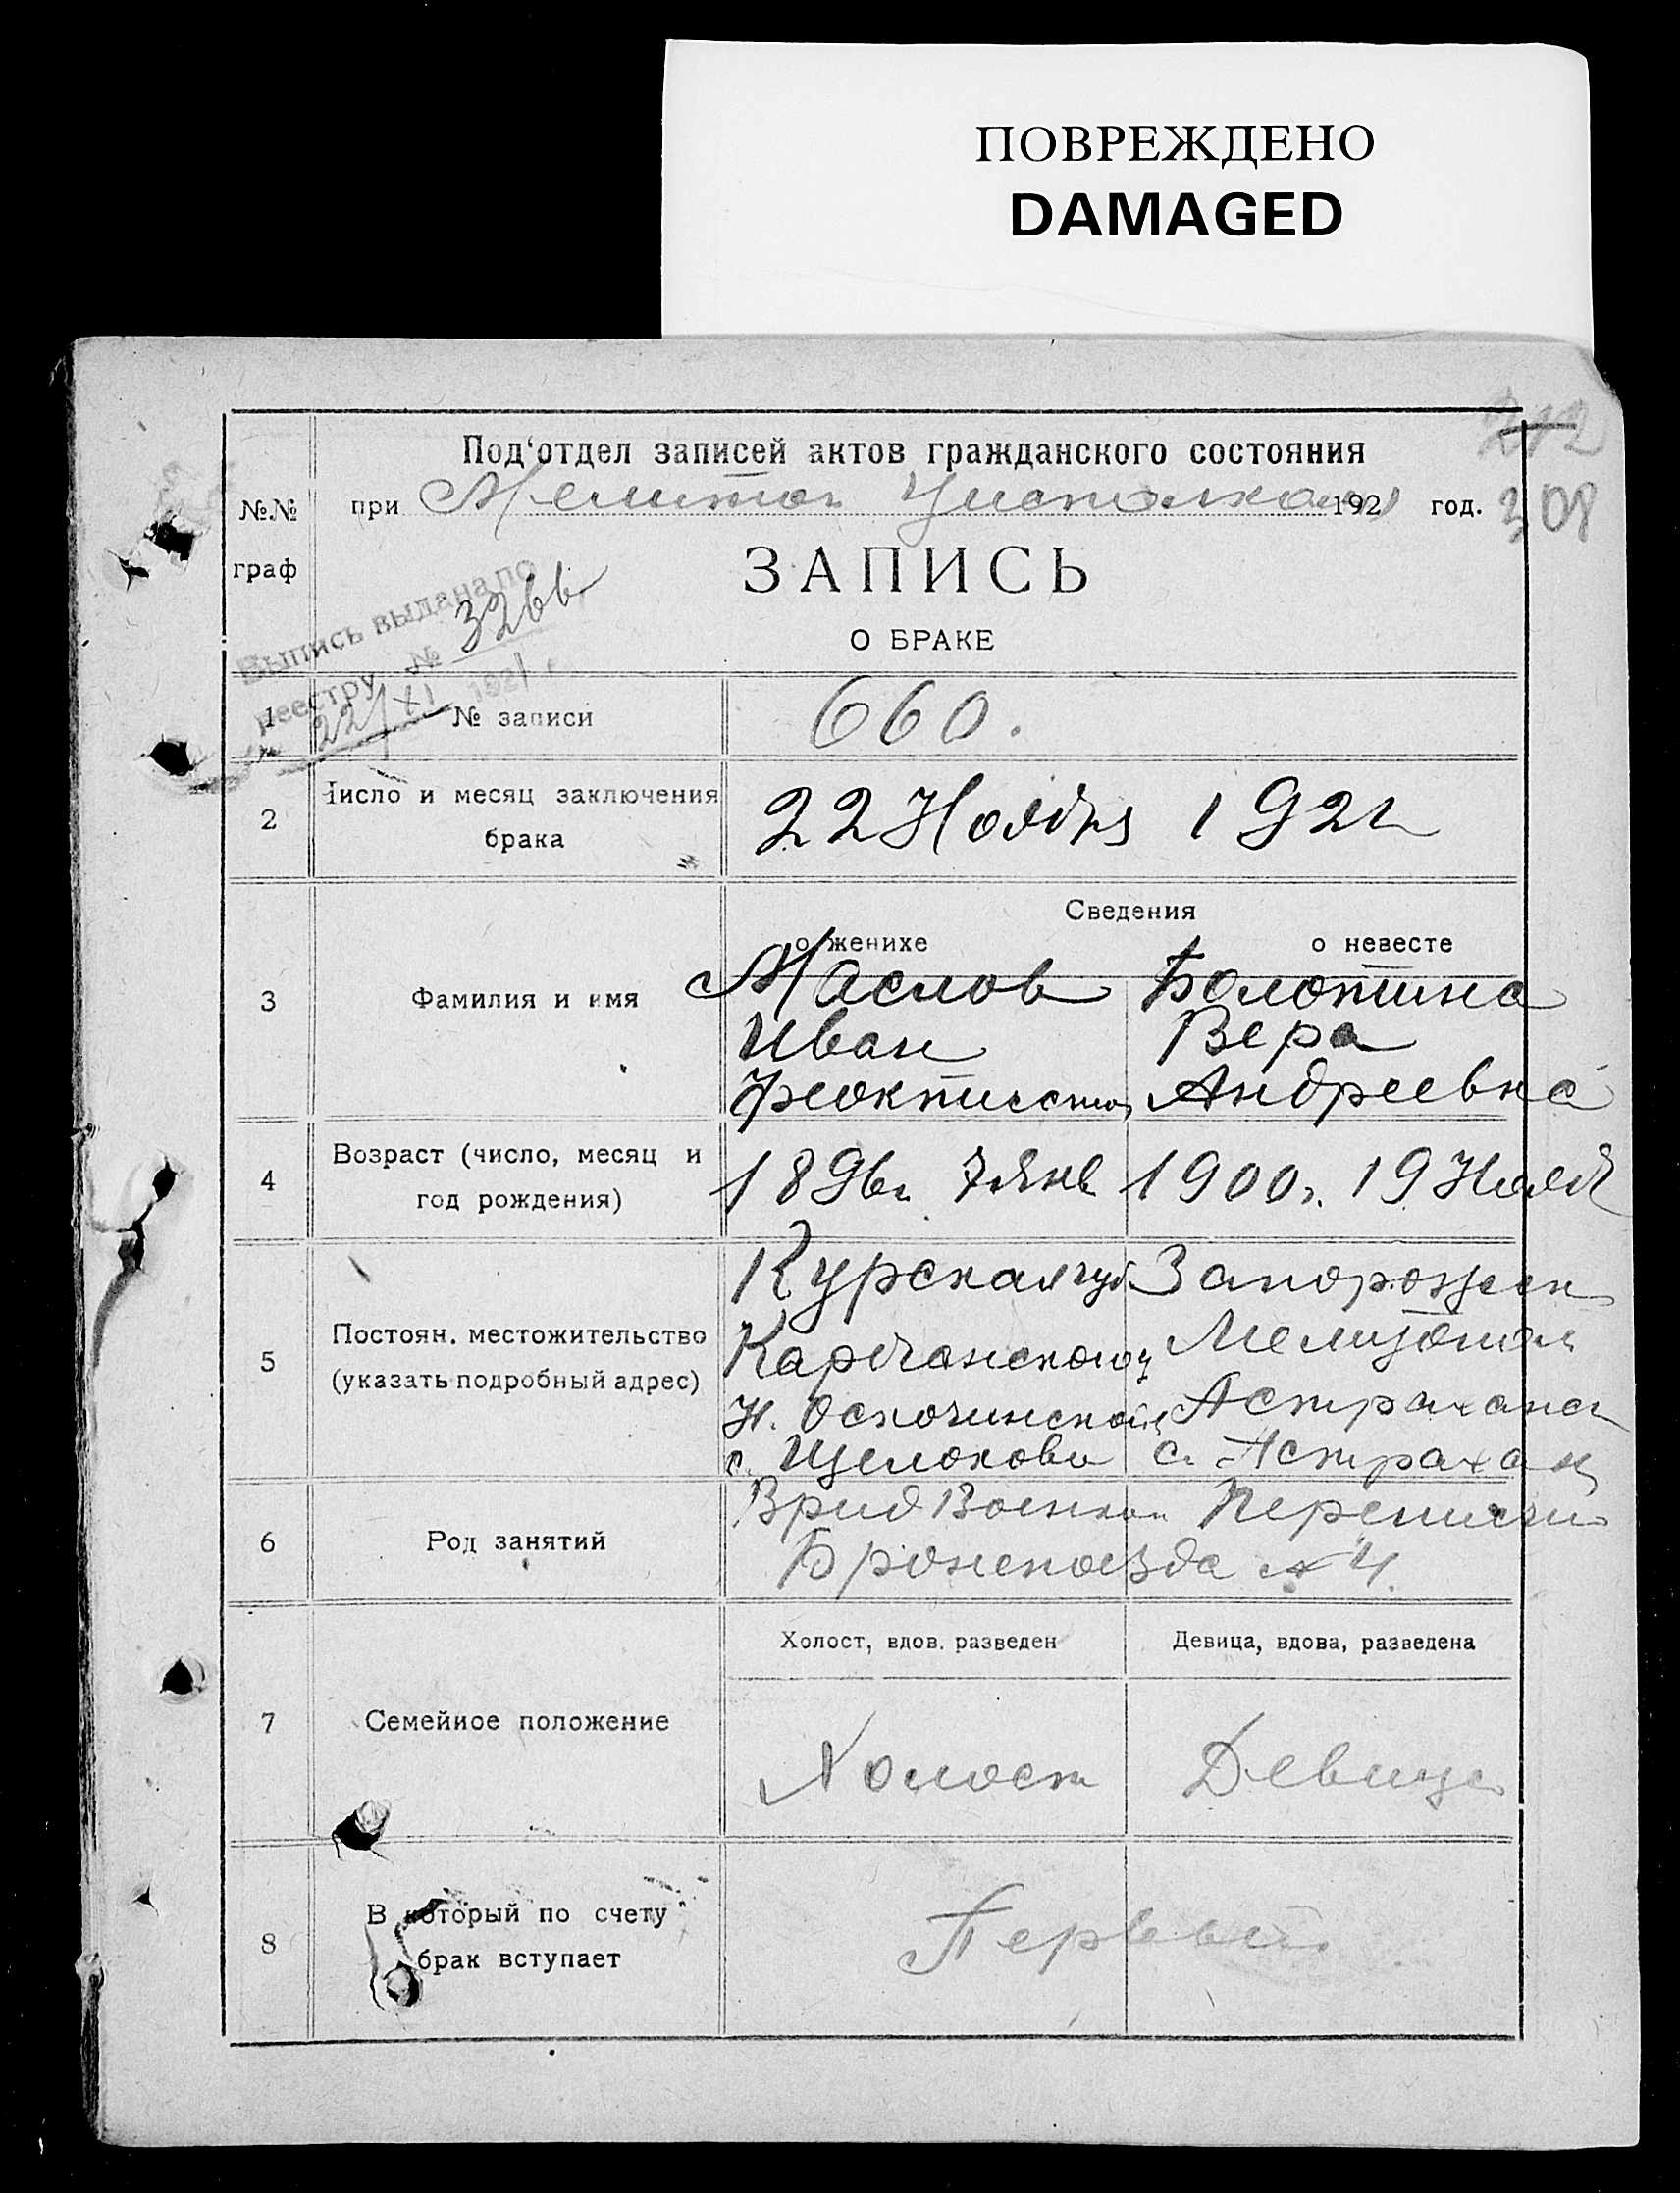 ПОВРЕЖДЕНО
DAMAGED
212
Под'отдел записей актов гражданского состояния
№№ граф
при Мелитоп Уисполкома 1921 год.
308
ЗАПИСЬ
О БРАКЕ
Выпись выдана по
реестру № 3266
22/XI 1921 г.
1 № записи 660.
2 Число и месяц заключения брака 22 Ноября 1921
Сведения
о женихе о невесте
3 Фамилия и имя Маслов Болотина
Иван Вера
Феоктистов Андреевна
4 Возраст (число, месяц и год рождения) 1896г 7 Янв 1900г. 19 Нояб
5 Постоян. местожительство (указать подробный адрес) Курская губ Запорожск
Мелитопол
Н. Оскочинской Астраханск
с. Щелоково с. Астрахан
6 Род занятий Врид Военком
Бронепоезда №4.
Холост, вдов. разведен Девица, вдова, разведена
7 Семейное положение Холост Девица
8 В который по счету брак вступает Первый